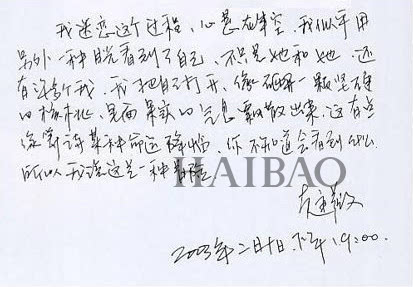 我迷恋这个过程,心悬在半空,我似乎用
另外一种目光看到了自己,不只是她和她,还
有没有我,我把自己打开,像砸开一颗坚硬
的核桃,里面果实的气息飘散出来,这有些
像等待某种命运降临,你不知道会看到什么
所以我说这是一种冒险
HAIBAO
2003年二月十日.下午.19:00.